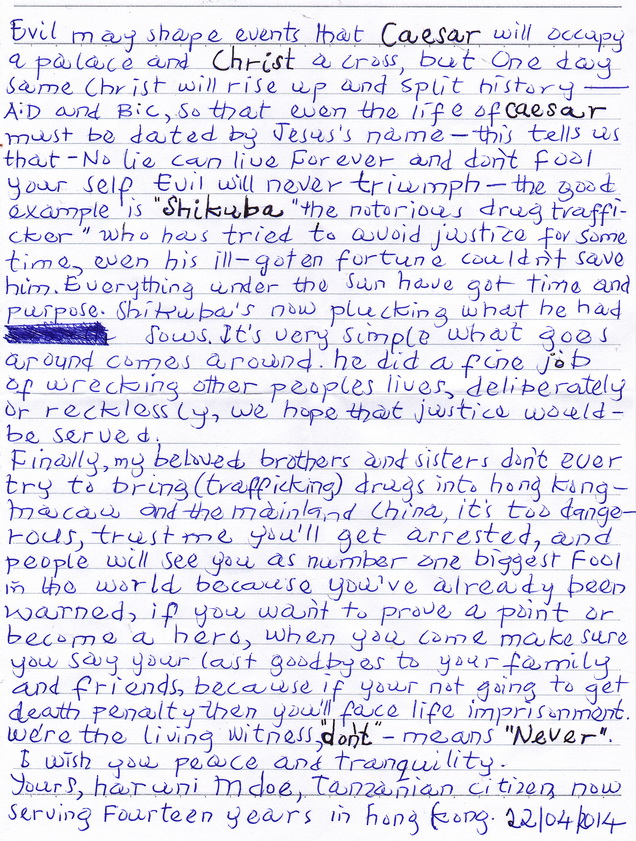 Evil may shape events that Caesar will occupy
a palace and Christ a cross, but One day
same Christ will rise up and split history —
A.D and B.C, so that even the life of caesar
must be dated by Jesus's name — this tells us
that - No lie can live Forever and don't Fool
your self Evil will never triumph — the good
example is "Shikuba" the notorious drug traffi-
cker" who has tried to avoid justice for some
time, even his ill-goten fortune couldn't save
him. Everything under the sun have got time and
purpose. Shikuba's now plucking what he had
sows. It's very simple what goes
around comes around. he did a fine job
of wrecking other peoples lives, deliberately
or recklessly, we hope that justice would-
be served.
Finally, my beloved brothers and sisters don't ever
try to bring (trafficking) drugs into hong kong-
macau and the mainland China, it's too dange-
rous, trust me you'll get arrested, and
people will see you as number one biggest Fool
in the world because you've already been
warned, if you want to prove a point or
become a hero, when you come make sure
you say your last goodbyes to your family
and friends, because if your not going to get
death penalty then you'll face life imprisonment.
We're the living witness, "dont" - means "Never".
I wish you peace and tranquility.
Yours, haruni mdoe, Tanzanian citizen now
serving Fourteen years in hong kong. 22/04/2014